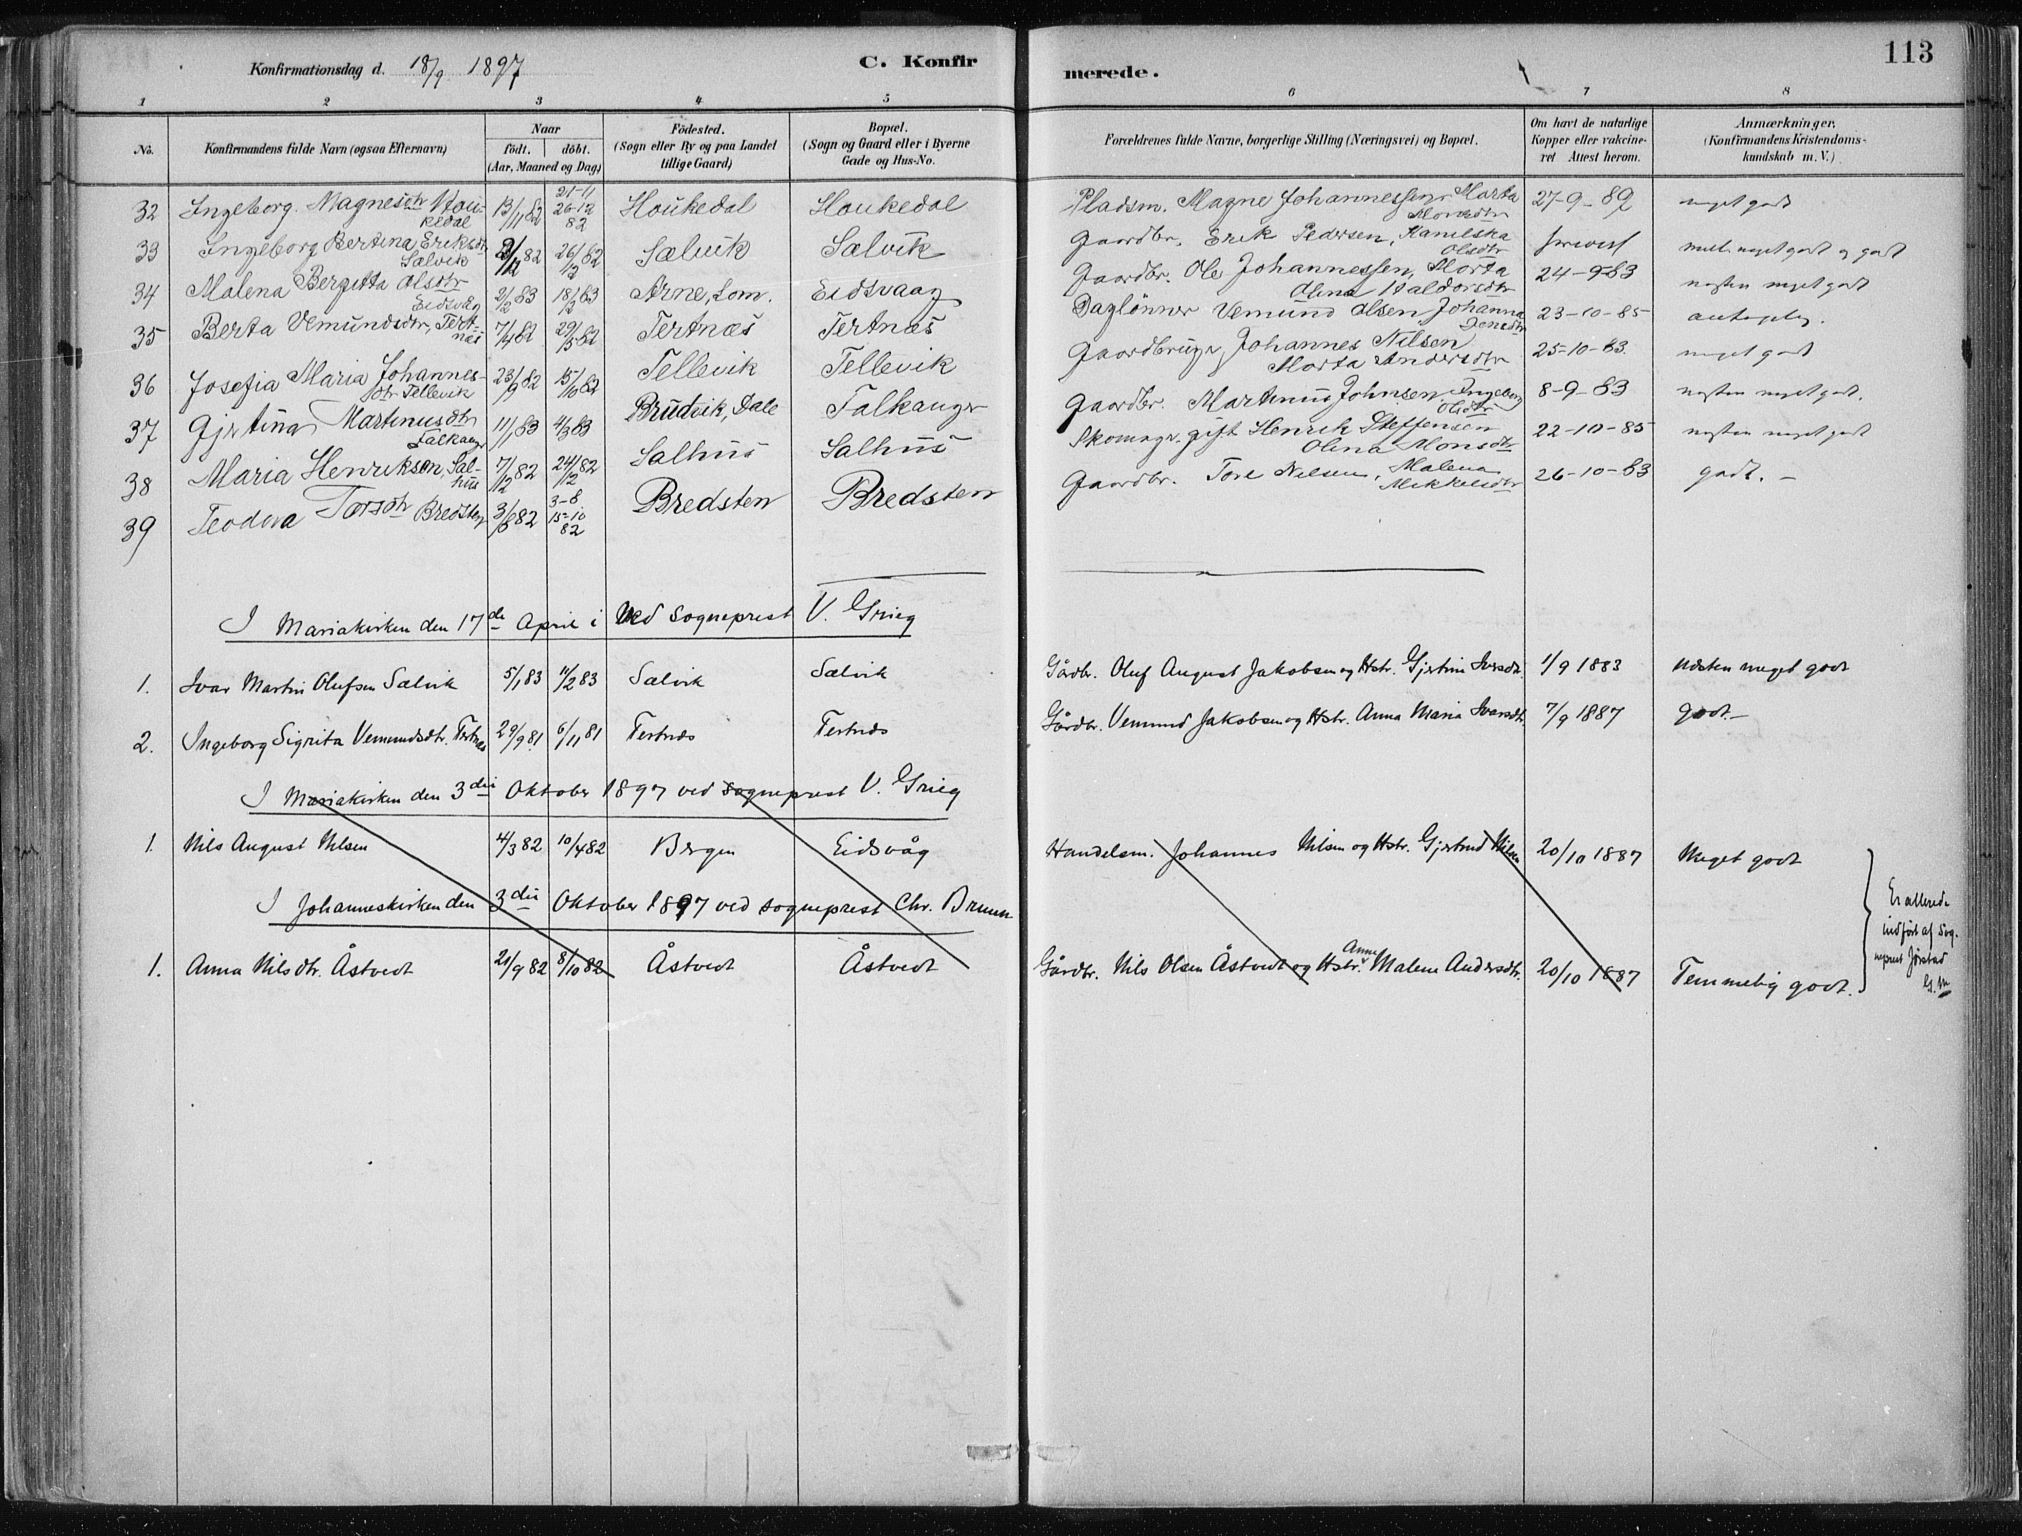 113
Konfirmationsdag d. 18/9 1897 C. Konfirmerede.
1 2 3 4 5 6 7 8
No. Konfirmandens fulde Navn (ogsaa Efternavn) Naar födt. döbt. (Aar, Maaned og Dag) Födested. (Sogn eller By og paa Landet tillige Gaard) Bopæl. (Sogn og Gaard eller i Byerne Gade og Hus-No. Forældrenes fulde Navne, borgerlige Stilling (Næringsvei) og Bopæl. Om havt de naturlige Kopper eller vakcineret Attest herom. Anmærkninger. (Konfirmandens Kristendomskundskab m. V.)
32 Ingeborg Magnesdtr Houkedal 13/11 82 21-11 26-12 82 Houkedal Houkedal Pladsm. Magne Johannessen, Marta Monsdtr 27-9-89 meget godt
33 Ingeborg Bertina Eriksdtr Sælvik 82 26/12 82 Sælvik Sælvik Gaardbr. Erik Pedersen, Olsdtr meget godt og godt
34 Malena Bergitta Olsdtr Eidsvåg 2/2 83 18/2 83 Arne, Lom. Eidsvaag Gaardbr. Ole Johannessen, Marta Olina Haldorsdtr 24-9-83 næsten meget godt
35 Berta Vemundsdtr, Tertnæs 7/4 82 29/5 82 Tertnæs Tertnæs Daglönner Vemund Olsen, Johanna Jensdtr 23-10-85 antagelig.
36 Josefia Maria Johannesdtr Tellevik 23/9 82 15/10 82 Tellevik Tellevik Gaardbruger Johannes Nilsen Marta Andersdtr 25-10-83 meget godt
37 Gjertina Martinusdtr Falkanger 11/1 83 4/3 83 Brudvik, Dale Falkanger Gaardbr. Martinus Johnsen, Ingeborg Olsdtr 8-9-83 næsten meget godt.
38 Maria Henriksen, Salhus 7/12 82 24/12 82 Salhus Salhus Skomager gift Henrik Steffensen Olina Monsdtr 22-10-85 næsten meget godt
39 Teodora Torsdtr Bredsten 3/6 82 3-8 15-10 82 Bredsten Bredsten Gaardbr. Tore Nilsen, Malena Mikkelsdtr 26-10-83 godt.-
I Mariakirken den 17de April i Ved Sogneprest V. Grieg
1. Ivar Martin Olufsen Sælvik 5/1 83 11/2 83 Sælvik Sælvik Gårdbr. Oluf August Jakobsen og Hstr. Gjertine Iversdtr. 1/9 1883 Næsten meget godt
2. Ingeborg Sigrita Vemundsdtr. Tertnæs 29/9 81 6/11 81 Tertnæs Tertnæs Gårdbr. Vemund Jakobsen og Hstr. Anna Maria Ivarsdtr. 7/9 1887 godt.-
I Mariakirken den 3die Oktober 1897 ved sogneprest V. Grieg
1. Nils August Nilsen 4/3 82 10/4 82 Bergen Eidsvåg Handelsm. Johannes Nilsen og Hstr. Gjertrud Nilsen 20/10 1887 Meget godt
I Johanneskirken den 3die Oktober 1897 ved sogneprest Chr. Bruun
1. Anna Nilsdtr. Åstvedt 21/9 82 8/10 82 Åstvedt Åstvedt Gårdbr. Nils Olsen Åstvedt og Hstr. Anne Malene Andersdtr. 20/10 1887 Temmelig godt.
Er allerede
indført af Sog-
neprest Jørstad